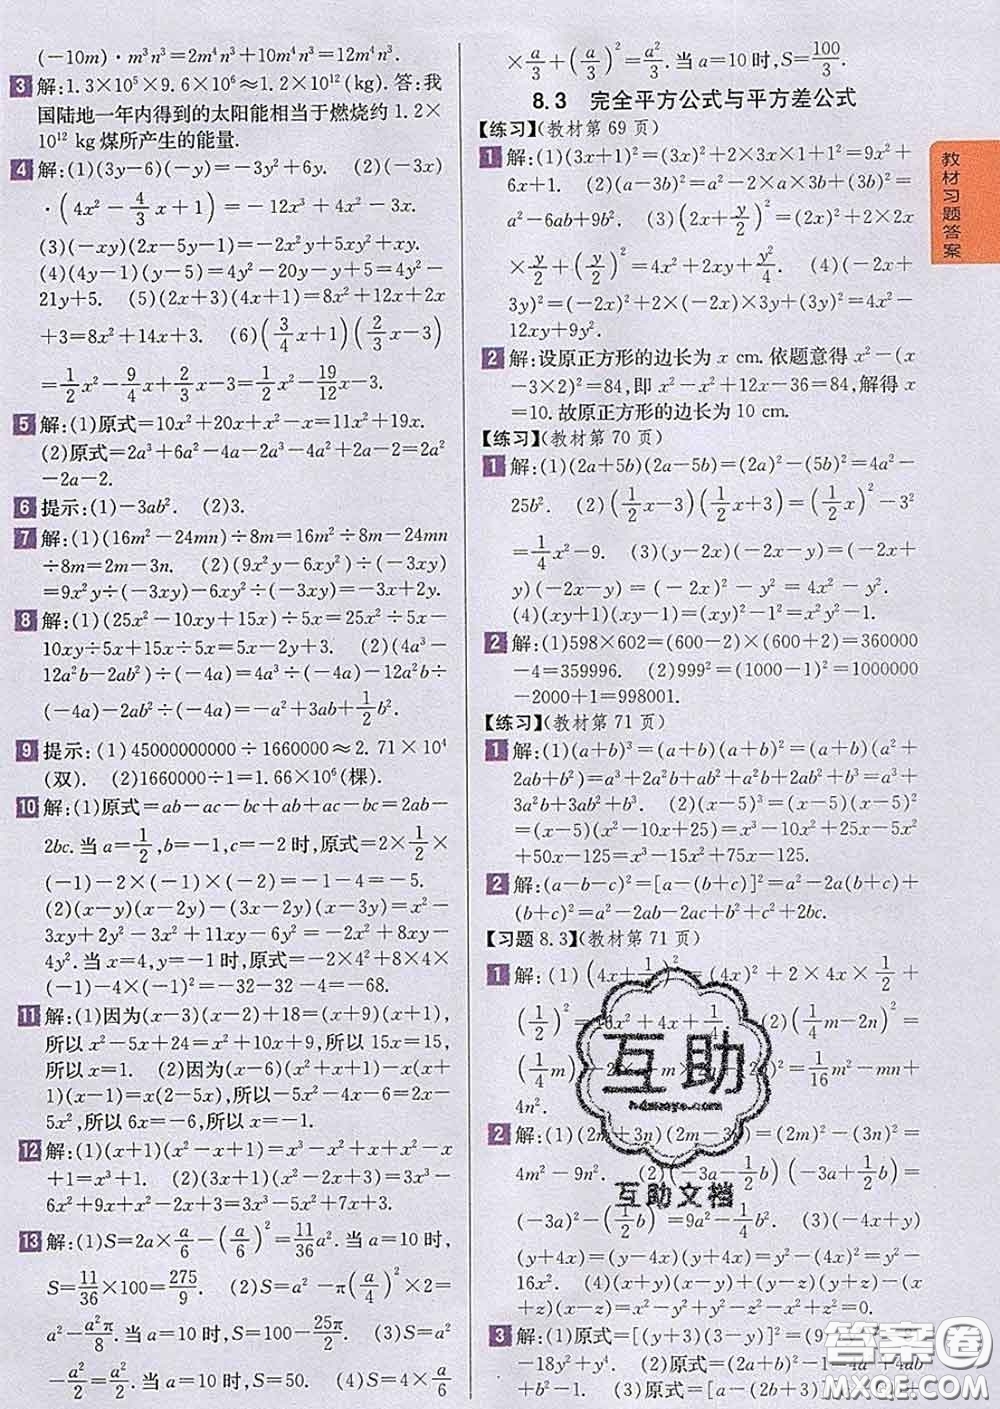 (-10m)·m³n³=2m⁴n³+10m⁴n³=12m⁴n³.
3 解:1.3×10⁵×9.6×10⁶≈1.2×10¹²(kg). 答:我
国陆地一年内得到的太阳能相当于燃烧约 1.2×
10¹² kg煤所产生的能量.
4 解:(1)(3y-6)(-y)=-3y²+6y. (2)(-3x)
·(4x²-4/3x+1)=-12x³+4x²-3x.
(3)(-xy)(2x-5y-1)=-2x²y+5xy²+xy.
(4)(4y-1)(y-5)=4y²-20y-y+5=4y²-
21y+5. (5)(2x+3)(4x+1)=8x²+12x+2x
+3=8x²+14x+3. (6)(3/4x+1)(2/3x-3)
=1/2x²-9/4x+2/3x-3=1/2x²-19/12x-3.
5 解:(1)原式=10x²+20x+x²-x=11x²+19x.
(2)原式=2a³+6a²-4a-2a³-4a²+2a-2=2a²
-2a-2.
6 提示:(1)-3ab². (2)3.
7 解:(1)(16m²-24mn)÷8m=16m²÷8m-24mn
÷8m=2m-3n. (2)(9x²y-6xy²)÷(-3xy)
=9x²y÷(-3xy)-6xy²÷(-3xy)=-3x+2y.
8 解:(1)(25x²-10xy+15x)÷5x=25x²÷5x-
10xy÷5x+15x÷5x=5x-2y+3. (2)(4a³-
12a²b-2ab²)÷(-4a)=4a³÷(-4a)-12a²b÷
(-4a)-2ab²÷(-4a)=-a²+3ab+1/2b².
9 提示:(1)45000000000÷1660000≈2.71×10⁴
(双). (2)1660000÷1=1.66×10⁶(棵).
10 解:(1)原式=ab-ac-bc+ab+ac-bc=2ab-
2bc. 当 a=1/2,b=-1,c=-2 时,原式=2×1/2×
(-1)-2×(-1)×(-2)=-1-4=-5.
(2)(x-y)(x-2y)-(3x-2y)(x-3y)=x²-
3xy+2y²-3x²+11xy-6y²=-2x²+8xy-
4y². 当 x=4,y=-1 时,原式=-2×4²+8×4×
(-1)-4×(-1)²=-32-32-4=-68.
11 解:(1)因为(x-3)(x-2)+18=(x+9)(x+1),
所以 x²-5x+24=x²+10x+9,所以 15x=15,
所以 x=1. (2)因为(x-6)(x+1)-5x=
(x+1)(x-5),所以 x²-5x-6-5x=x²-4x
-5,所以 6x=-6,所以 x=-1.
12 解:(1)(x+1)(x²-x+1)=x³-x²+x+x²-x
+1=x³+1. (2)(x²-2x+3)(3x+1)=3x³-
6x²+9x+x²-2x+3=3x³-5x²+7x+3.
13 解:(1)S=2a×a/6-(a/6)²=11/36a². 当 a=10 时,
S=11/36×100=275/9. (2)S=a²-π(a/4)²×2=
a²-a²π/8. 当 a=10 时,S=100-25π/2. (3)S=a²
-a²/2=a²/2. 当 a=10 时,S=50. (4)S=4×a/6
×a/3+(a/3)²=a²/3. 当 a=10 时,S=100/3.
8.3 完全平方公式与平方差公式
【练习】(教材第 69 页)
1 解:(1)(3x+1)²=(3x)²+2×3x×1+1²=9x²+
6x+1. (2)(a-3b)²=a²-2×a×3b+(3b)²=
a²-6ab+9b². (3)(2x+y/2)²=(2x)²+2×2x
×y/2+(y/2)²=4x²+2xy+y²/4. (4)(-2x+
3y)²=(-2x)²+2×(-2x)×3y+(3y)²=4x²-
12xy+9y².
2 解:设原正方形的边长为 x cm. 依题意得 x²-(x
-3×2)²=84,即 x²-x²+12x-36=84,解得 x
=10. 故原正方形的边长为 10 cm.
【练习】(教材第 70 页)
1 解:(1)(2a+5b)(2a-5b)=(2a)²-(5b)²=4a²-
25b². (2)(1/2x-3)(1/2x+3)=(1/2x)²-3²
=1/4x²-9. (3)(y-2x)(-2x-y)=(-2x+
y)(-2x-y)=(-2x)²-y²=4x²-y².
(4)(xy+1)(xy-1)=(xy)²-1²=x²y²-1.
2 解:(1)598×602=(600-2)×(600+2)=360000
-4=359996. (2)999²=(1000-1)²=1000000
-2000+1=998001.
【练习】(教材第 71 页)
1 解:(1)(a+b)³=(a+b)²(a+b)=(a²+
2ab+b²)(a+b)=a³+2a²b+ab²+a²b+2ab²+b³=
a³+3a²b+3ab²+b³. (2)(x-5)³=(x-5)(x-5)²
=(x-5)(x²-10x+25)=x³-10x²+25x-5x²
+50x-125=x³-15x²+75x-125.
2 解:(a-b-c)²=[a-(b+c)]²=a²-2a(b+c)+
(b+c)²=a²-2ab-2ac+b²+c²+2bc.
【习题 8.3】(教材第 71 页)
1 解:(1)(4x+1/2)²=(4x)²+2×4x×1/2+
(1/2)²=16x²+4x+1/4. (2)(1/4m-2n)²=
(1/4m)²=1/16m²-mn+
4n².
2 解:(1)(2m+3n)(2m-3n)=(2m)²-(3n)²=
4m²-9n². (2)(-3a-1/2b)(-3a+1/2b)=
(-3a)²-(1/2b)²=9a²-1/4b². (3)(-4x+y)
(y+4x)=(y-4x)(y+4x)=y²-(4x)²=y²-
16x². (4)(x+y)(x-y)+(y+z)(y-z)+(x
+z)(z-x)=x²-y²+y²-z²+z²-x²=0.
3 解:(1)原式=[(y+3)(3-y)]²=(9
-18y²+y⁴. (2)原式=-1-4a²b²-4ab+4ab
=4a²b²-1. (3)原式=[a-(2b+3)][a+(2b+
教材习题答案
互助
互助文档
答案圈
MXQE.COM